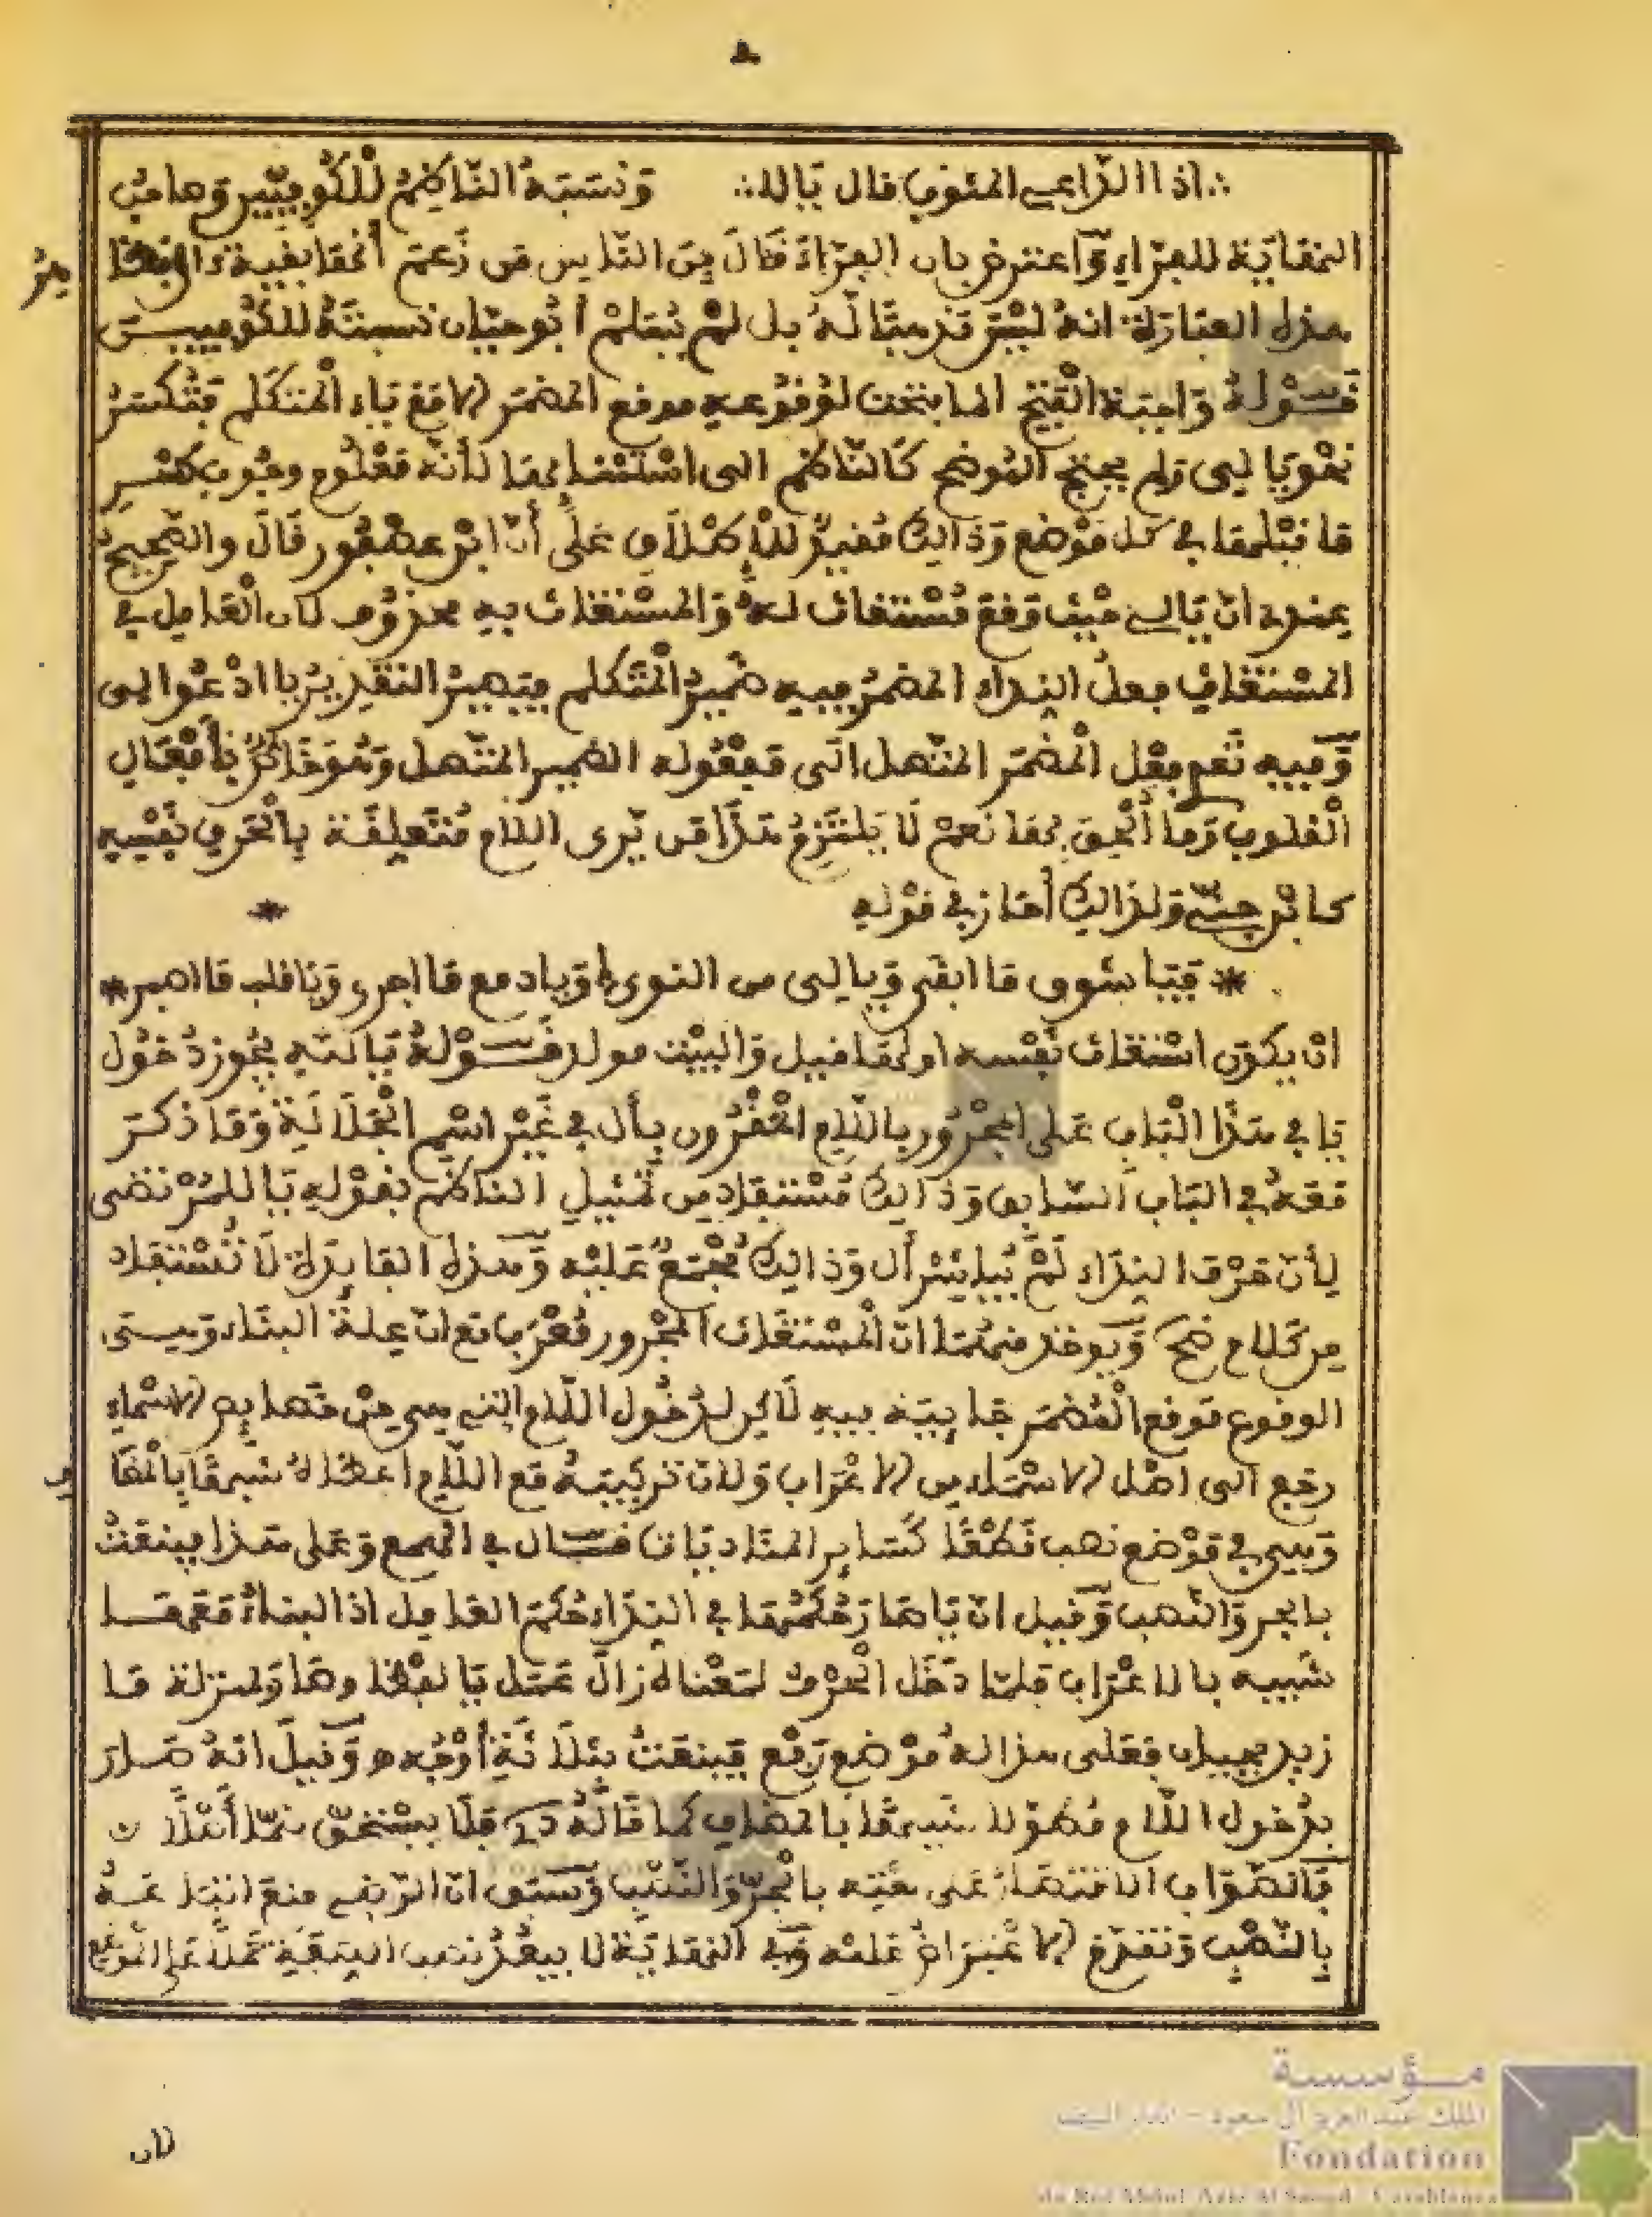 ∴ اذا الدّاعى المثوب قال يَالا ∴ وَنسَبَهُ النّاظِمُ لِلْكُوفِيّين وَصاحب
النهَايَة للفرّاء وَاعترض بان الفرّاءَ قَالَ مِنَ النّاس مَن زَعَمَ أنهَا بقية ءال وَ
هذه العبَارَة انهُ ليْسَ مَذهبًا لَهُ بل لمْ يَعْلمْ أبُو حيّان نسبتَهُ للكُوفيين
قَوْلهُ وَاجبَة الْفَتْح لوُقُوعه موقع المضمَر الا مَع يَاء الْمتكَلم فَتُكسَرُ
نحْوَ يَا لى وَلم يحتج المُوضح كَالنّاظم الى اسْتثنائهَا لأنّه مَعْلُوم وجُوب كسْرِ
مَا قبْلهَا فى كل مَوْضع وَذَالك مُقيّد للاِطْلاَق عَلَى أنّ ابْن عصْفُور قَالَ والصّحيح
عندى انّ يَا لى حَيْث وَقعَ مُسْتغاث لهُ وَالمسْتغاث به محذوف لان الْعَامل فى
المسْتغاث فعلُ النداء المضمَرُ فيه ضمِيرُ الْمتَكلم فيَصيرُ التقديرُ يا ادْعُوا لى
وَفيه تَعدى فِعْل الْمضْمَر المتّصل الَى مَفعُوله الضّمير المتّصل وَهُوَ خَاصٌّ بأفْعَالِ
الْقلوب وَمَا ألْحِقَ بهَا نعمْ لاَ يَلتَزِمُ هَذَا مَن يَرى اللام مُتَعلِقَة بالْحَرف نفْسِه
كابْن جنّى وَلذَالكَ أجَازَ فى قوْله
* فَيَا شوق مَا ابقى وَيا لى من النوى وَيا دمع مَا اجرى وَيا قلب مَا اصبى *
انْ يكوُن اسْتغاث بنفْسه او لهَا قيل وَالبيْت مولد قَوْلهُ يَا لله يَجُوز دُخُول
يَا فى هَذَا الْبَاب عَلى المجْرُور باللاّم المقْرُون بأل فى غَيْر اسْم الجَلاَلَة وَمَا ذكَرَ
مَعَهُ فى البَاب السّابق وَذَالك مُسْتفاد من تمثِيلِ الناظم بقوْله يَا للمُرْتضى
لِأنّ حَرْفَ النِدَاء لَمْ يُبَاشِر أل وَذَالكَ مُجْمَعٌ عَليْه وَهذه الفَائدَة لاَ تُسْتفاد
مِن كلام ضح وَيُوخذ منهُمَا انّ الْمسْتغاث المجْرُور مُعْرَب مَع انّ عِلة البنَاء وَهىَ
الوقُوع مَوقع الْمُضمَر ثابِتة فيه لاَكن لدُخُول اللاّم التى هى مِنْ خصَائِص الاسْماء
رجَع الى اصْل الاسْمَاء من الاعْرَاب وَلان تركيبَهُ مَع اللاّم اعطاهُ شبهًا بالْمُضَا
وَهى فى مَوْضع نصب لَفْظًا كَسَائر المنَاديَات قَال فى الهمع وَعَلى هَذا فينعَتُ
بالجر وَالنّصب وَقيل انّ
شبيه بالاعْرَاب فلمّا دَخَل الْحَرْفُ لمَعْناهُ زَالَ عَمَل يَا لفظا وصَارَ بمنزلة مَا
زيد بجبان فعَلى هذا لهُ مَوْضع رَفْع فيُنعَتُ بثلاَثَةِ أَوْجُه وَقيلَ انهُ صَارَ
بدُخول اللاّم مُطَوّلا شبيهًا بالمضَاف كمَا قَالَهُ فلا يسْتحقّ محَلا أصْلا
فَالصّوَاب الاقتصَارُ عَلى نعْتِه بالجرّ وَالنّصْب وَسَبق انّ الرّضى منعَ انتِ عتهُ
بالنّصْب وَتقدم الاعْتِرَاضُ عَليْه وَفى النهَايَة لا يبْعُدُ نصب الصّفَة حَملاً عَلى المَوضع
لان
مؤسسة
الملك عبد العزيز آل سعود - الدار البيضاء
Fondation
du Roi Abdul Aziz Al Saoud - Casablanca